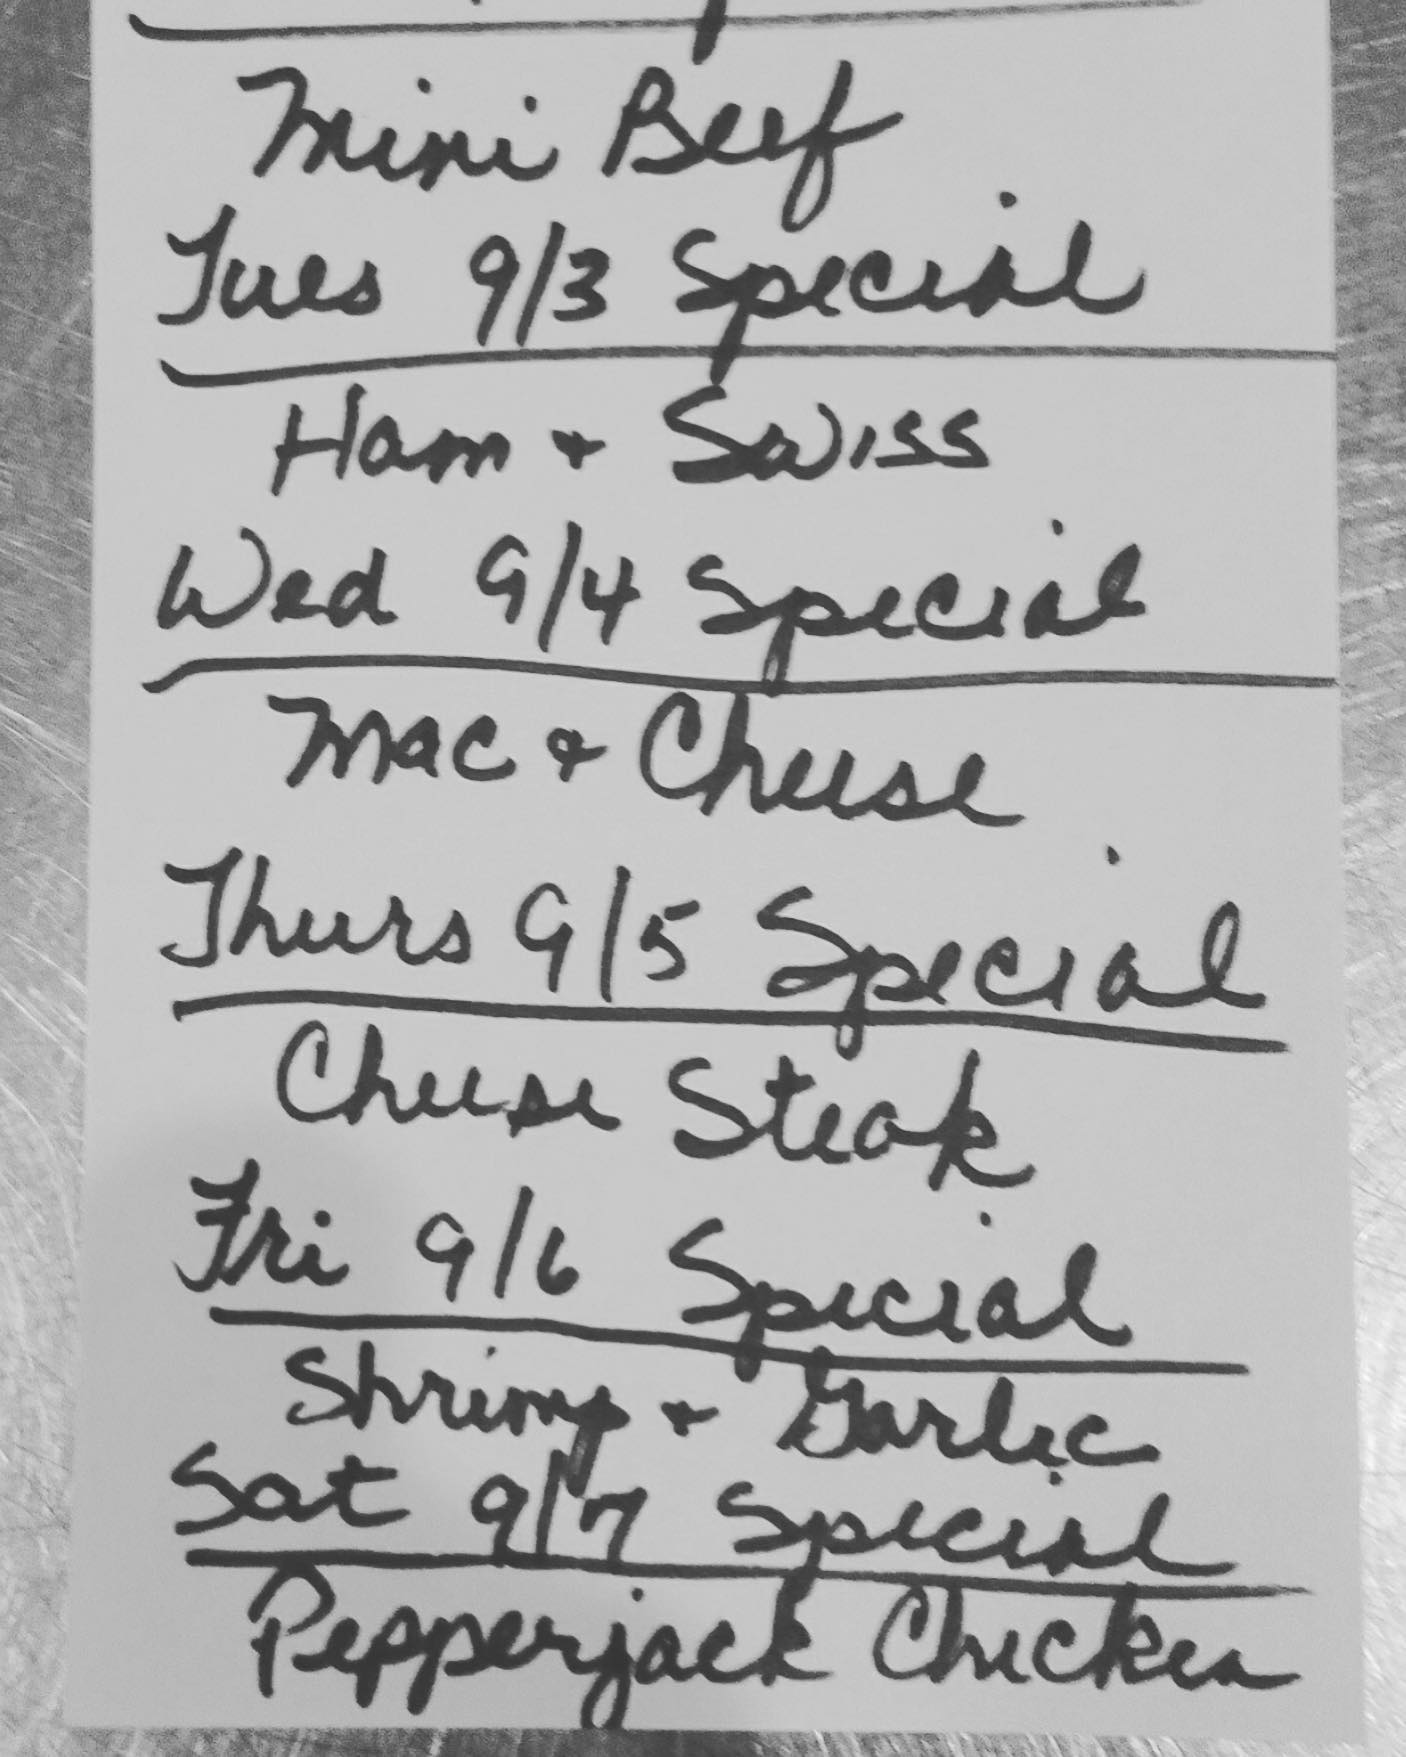 Mini Beef
Tues 9/3 Special
Ham + Swiss
Wed 9/4 Special
Mac + Cheese
Thurs 9/5 Special
Cheese Steak
Fri 9/6 Special
Shrimp + Garlic
Sat 9/7 Special
Pepperjack Chicken